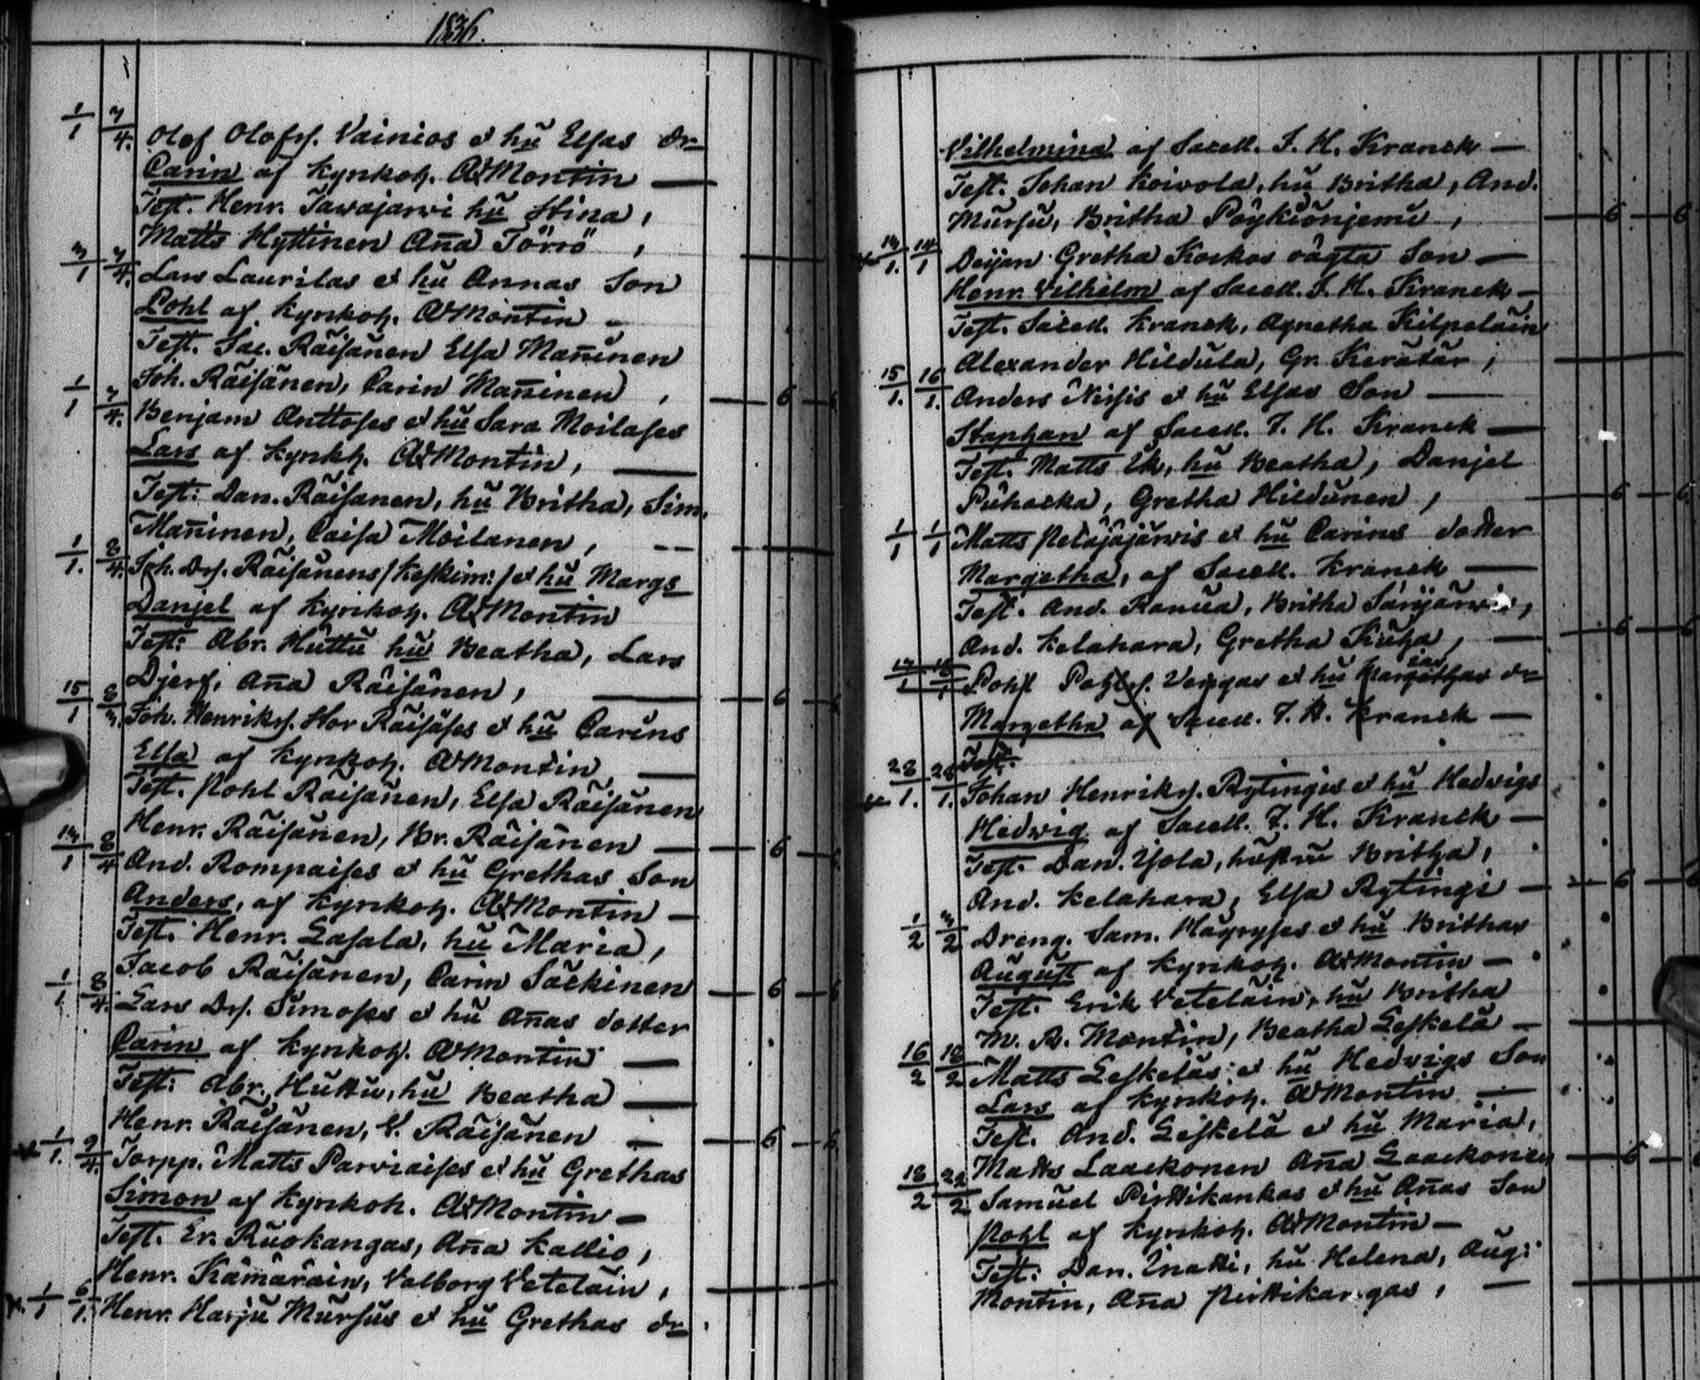 1836.
1/1 7/4. Olof Olofss. Vainios et hu Elsas dr
Carin af Kyrkoh. A Montin —
Test. Henr. Tavajarvi hu Stina,
Matts Hyttinen Aña Törrö,
3/1 7/4. Lars Laurilas et hu Annas Son
Pohl af Kyrkoh. A Montin —
Test. Jac. Räisänen Elsa Mañinen
Joh. Räisänen, Carin Mañinen, — 6
1/1 7/4. Benjam Anttoses et hu Sara Moilases
Lars af Kyrkh. A Montin, —
Test: Dan. Räisanen, hu Britha, Sim.
Mañinen, Caisa Moilanen, —
1/1. 8/4. Joh. Drs. Räisänens /Keskim:/ et hu Margs
Danjel af Kyrkoh. A Montin
Test: Abr. Huttu hu Beatha, Lars
Djerf, Aña Räisänen, — 6
15/1 8/4. Joh. Henrikss. Hor Räisäses et hu Carins
Elsa af Kyrkoh. A Montin —
Test. Pohl Räisänen, Elsa Räisänen
Henr. Räisänen, Br. Räisänen — 6
14/1 8/4 And. Rompaises et hu Grethas Son
Anders, af Kyrkoh. A Montin —
Test. Henr. Lasala, hu Maria,
Jacob Räisänen, Carin Säckinen — 6
1/1 8/4. Lars Drs. Simoses et hu Añas dotter
Carin af Kyrkoh. A Montin —
Test: Abr. Huttu, hu Beatha —
Henr. Räisänen, V. Räisänen — 6
1/1. 9/4. Torpp. Matts Parviaises et hu Grethas
Simon af Kyrkoh. A Montin —
Test. Er. Ruokangas, Aña Kallio,
Henr. Kämäräin, Valborg Veteläin,
1/1 6/1. Henr. Harju Mursus et hu Grethas dr
Vilhelmina af Sacell. J. H. Kranck —
Test. Johan Koivola, hu Britha, And.
Mursu, Britha Pöykiönjemi, — 6 — 6
13/1. 14/1 Deijan Gretha Koskos oägta Son —
Henr. Vilhelm af Sacell. J. H. Kranck —
Test. Sacell. Kranck, Agnetha Kilpeläin
Alexander Hildula, Gr. Kerätär, —
15/1. 16/1. Anders Niisis et hu Elsas Son —
Staphan af Sacell. J. H. Kranck —
Test. Matts Ek, hu Beatha, Danjel
Puhacka, Gretha Hildunen, — 6 — 6
1/1 1/1 Matts Petäjäjärvis et hu Carins dotter
Margetha, af Sacell. Kranck —
Test. And. Ranua, Britha Särijärvi,
And. Kelahara, Gretha Kuha, — 6
17/1 18/1 Pohl Pohlss. Vengas et hu Margethas dr
Margetha af Sacell. J. H. Kranck —
Test.
23/1. 24/1. Johan Henrikss. Rytingis et hu Hedvigs
Hedvig af Sacell. J. H. Kranck —
Test. Dan. Yjola, hustru Britha,
And. Kelahara, Elsa Rytingi — 6
1/2 3/2 Dreng. Sam. Mäyryses et hu Brithas
August af Kyrkoh. A Montin —
Test. Erik Vetelain, hu Britha
M. R. Montin, Beatha Leskelä —
16/2 18/2 Matts Leskeläs et hu Hedvigs Son
Lars af Kyrkoh. A Montin —
Test. And. Leskelä et hu Maria,
Matts Laackonen Aña Laackonen — 6
18/2 22/2 Samuel Pirttikankas et hu Añas Son
Pohl af Kyrkoh. A Montin —
Test: Dan. Inatti, hu Helena, Aug:
Montin, Aña Pirttikangas, —